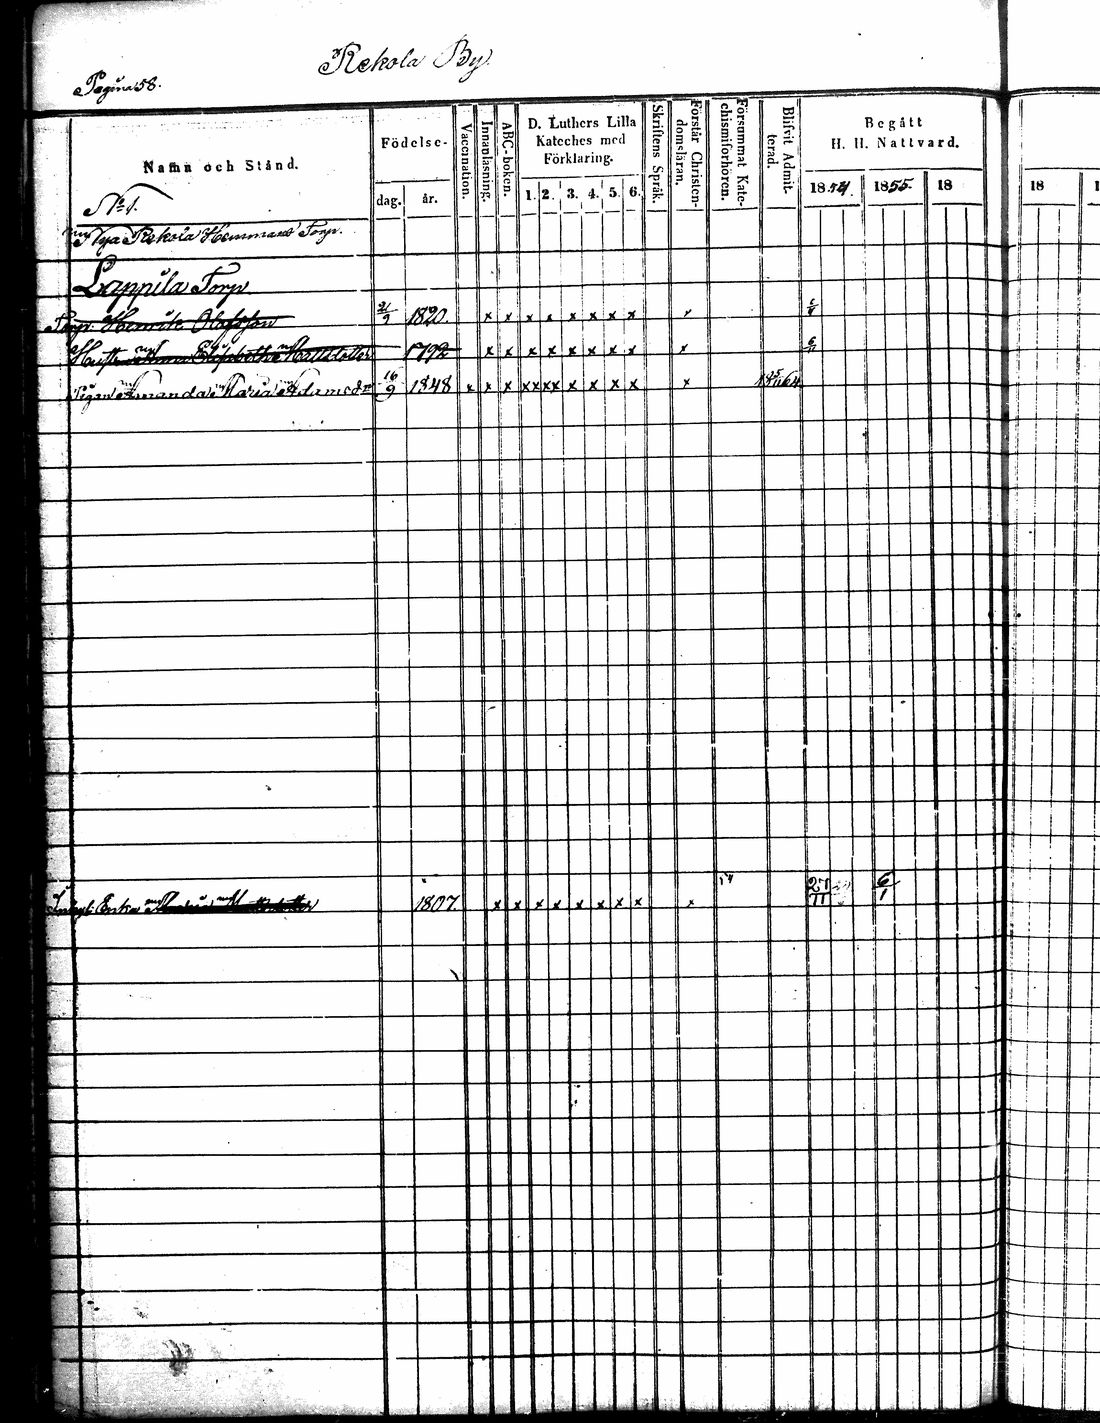 Rekola By
Pagina 58.
Namn och Stånd.
Födelse-
dag. år.
Vaccination.
Innanläsning.
ABC-boken.
D. Luthers Lilla
Kateches med
Förklaring.
1. 2. 3. 4. 5. 6.
Skriftens Språk.
Förstår Christen-
domsläran.
Försummat Kate-
chismiförhören.
Blifvit Admit-
terad.
Begått
H. H. Nattvard.
1854. 1855. 18
18
No 1.
Nya Rekola Hemmans Torp.
Lappila Torp
Torp. Henrik Olafsson 21/9 1820 x x x x x x x x
Anna Elisabetha Mattsdotter 1792 x x x x x x x x x
Pigan Amanda Maria Adamsdr 16/9 1848 x x x x x x x x x x x x
Erika Mattsdotter 1807 x x x x x x x x x 27/11 6/1